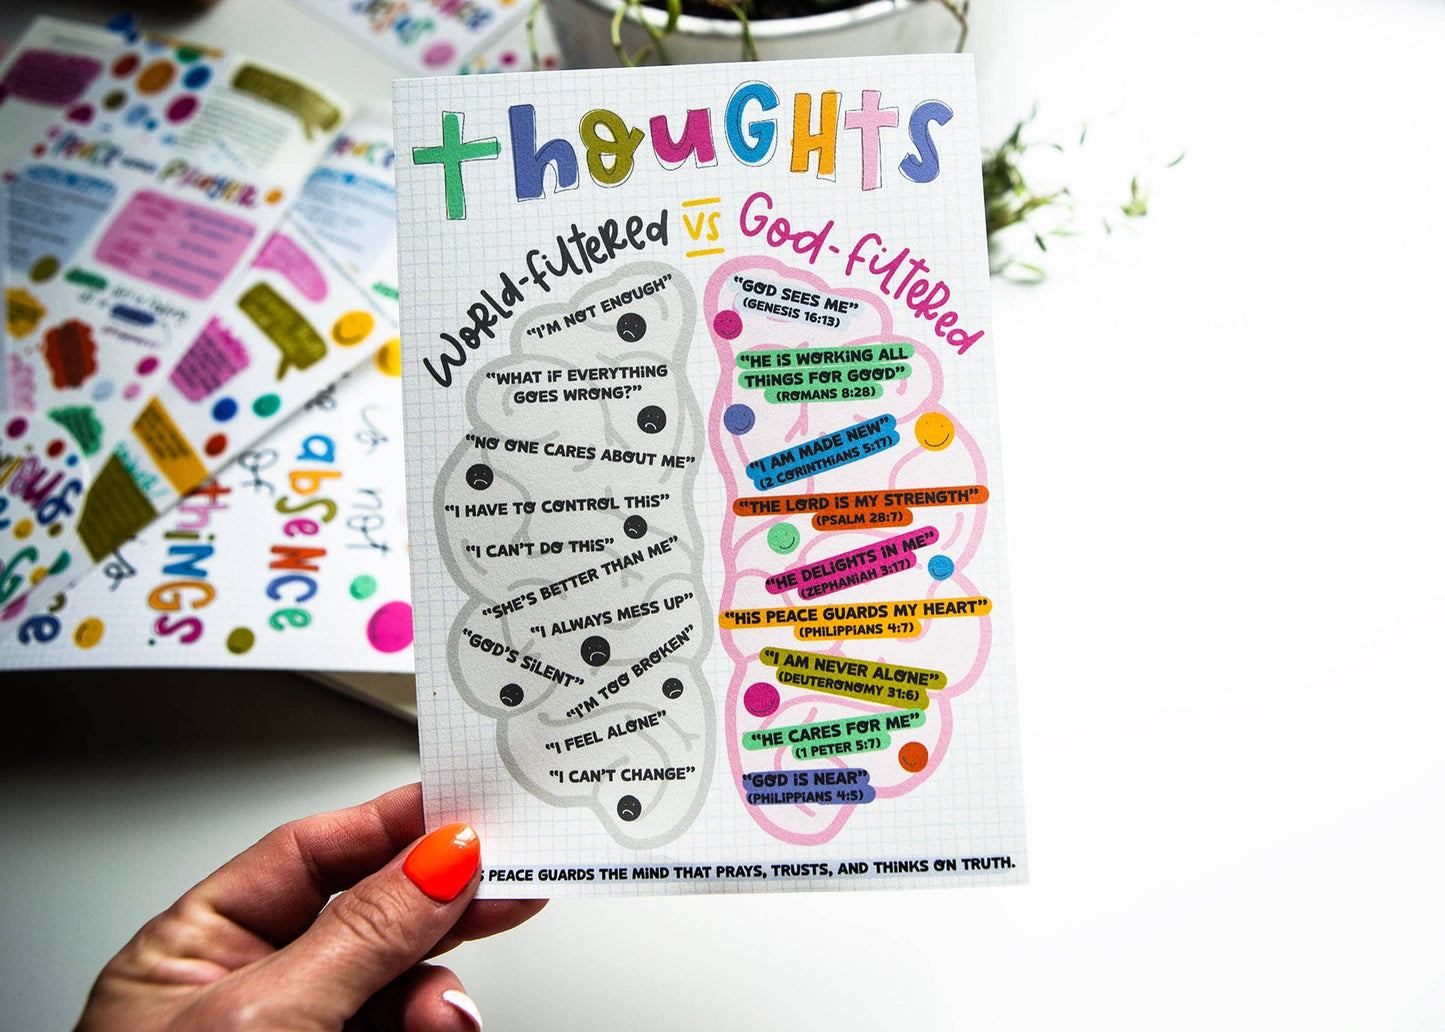 thoUGHts
World-filteRed vs God-filteRed
“I’M NOT ENOUGH”
“WHAT iF EVERYTHiNG
GOES WRONG?”
“NO ONE CARES ABOUT ME”
“I HAVE TO CONTROL THiS”
“I CAN’T DO THiS”
“SHE’S BETTER THAN ME”
“I ALWAYS MESS UP”
“GOD’S SiLENT”
“I’M TOO BROKEN”
“I FEEL ALONE”
“I CAN’T CHANGE”
“GOD SEES ME”
(GENESiS 16:13)
“HE iS WORKiNG ALL
THiNGS FOR GOOD”
(ROMANS 8:28)
“I AM MADE NEW”
(2 CORiNTHiANS 5:17)
“THE LORD iS MY STRENGTH”
(PSALM 28:7)
“HE DELiGHTS iN ME”
(ZEPHANiAH 3:17)
“HiS PEACE GUARDS MY HEART”
(PHiLiPPiANS 4:7)
“I AM NEVER ALONE”
(DEUTERONOMY 31:6)
“HE CARES FOR ME”
(1 PETER 5:7)
“GOD iS NEAR”
(PHiLiPPiANS 4:5)
PEACE GUARDS THE MiND THAT PRAYS, TRUSTS, AND THiNKS ON TRUTH.
PEACE
PRAYER
JESUS
is not
absence
of
things.